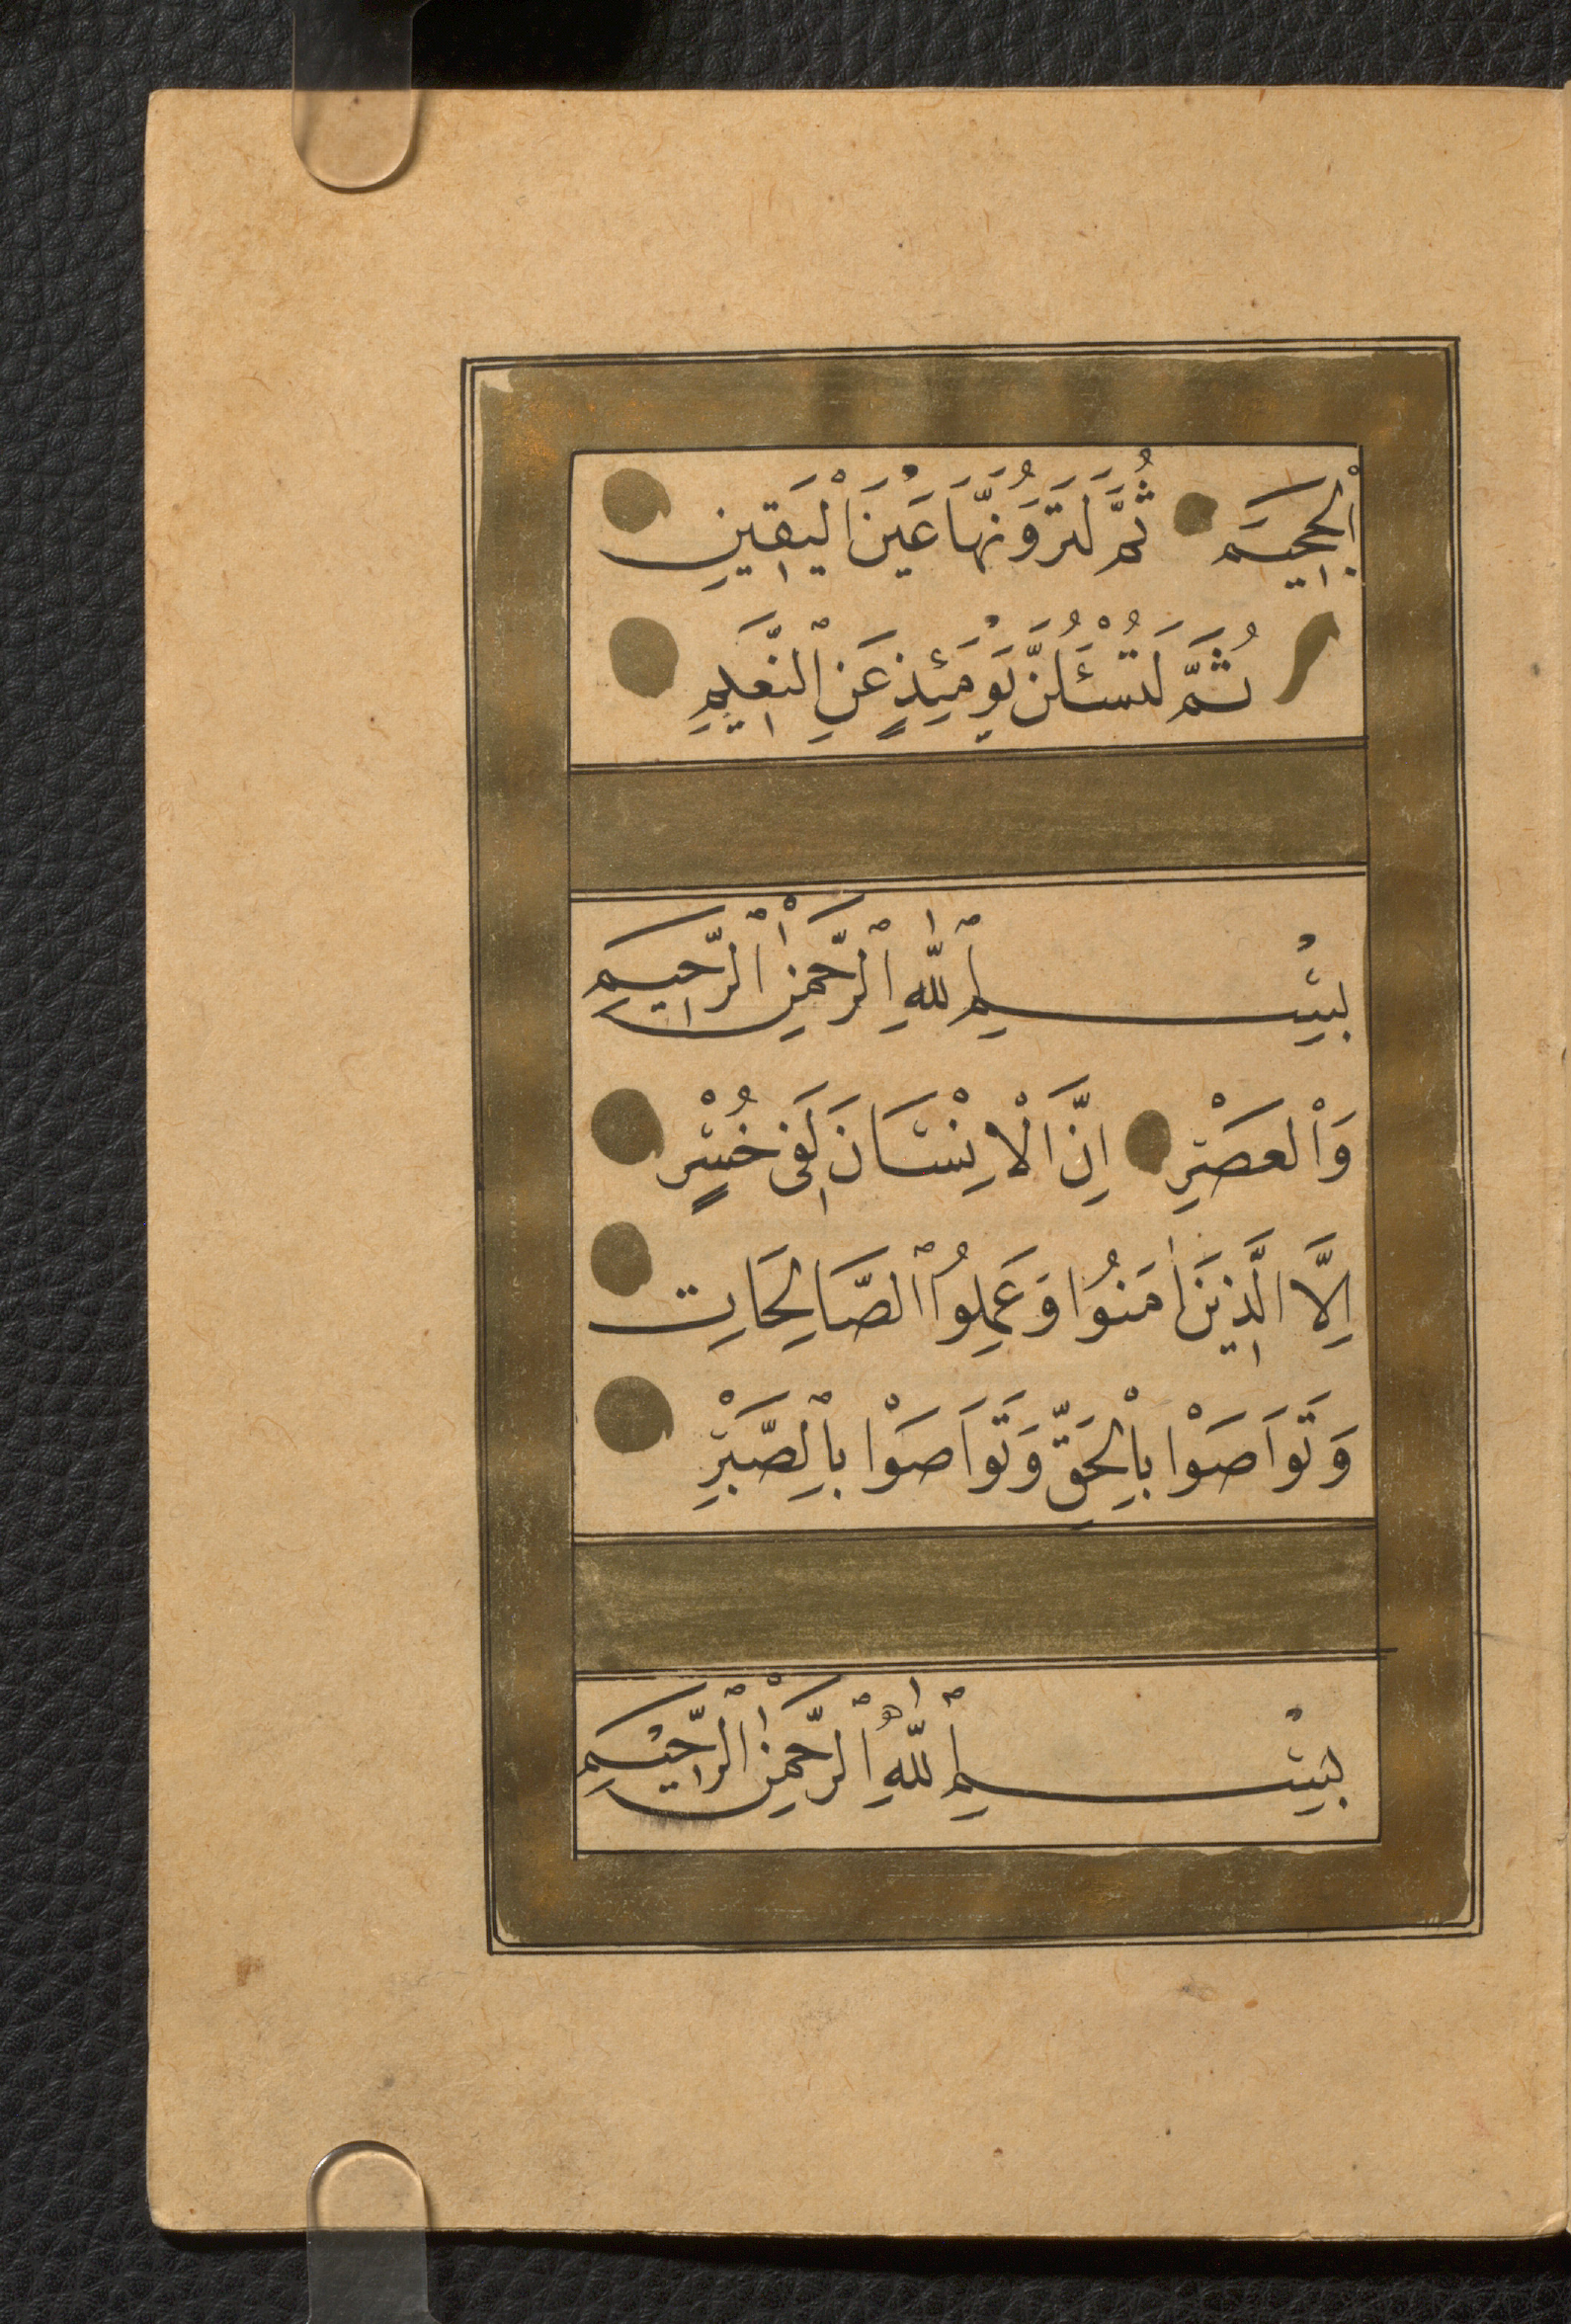 اْلجَحِيمَ ثُمَّ لَتَرَوُنَّهَا عَيْنَ اْليَقِينِ
ثُمَّ لَتُسْئَلُنَّ يَوْمَئِذٍ عَنِ النَّعِيمِ
بِسْمِ اللّٰهِ الرَّحْمٰنِ الرَّحِيمِ
وَاْلعَصْرِ اِنَّ اْلاِنْسَانَ لَفِى خُسْرٍ
اِلَّا الَّذِينَ اٰمَنُوا وَعَمِلُوا الصَّالِحَاتِ
وَتَوَاصَوْا بِاْلحَقِّ وَتَوَاصَوْا بِالصَّبْرِ
بِسْمِ اللّٰهِ الرَّحْمٰنِ الرَّحِيْمِ